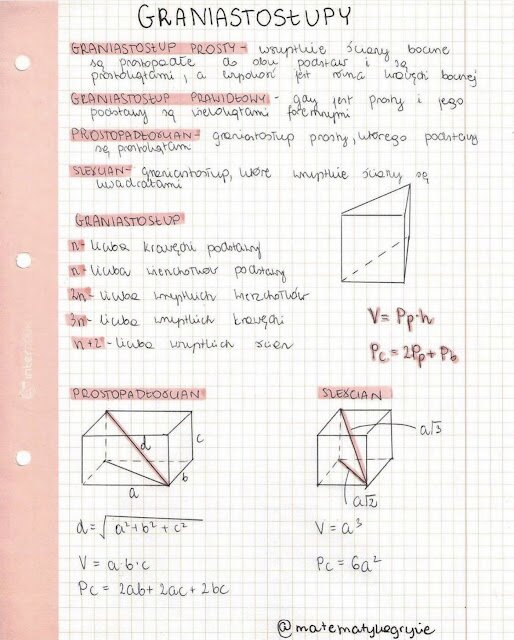 GRANIASTOSŁUPY
GRANIASTOSŁUP PROSTY - wszystkie ściany boczne
są prostopadłe do obu podstaw i są
prostokątami, a wysokość jest równa krawędzi bocznej
GRANIASTOSŁUP PRAWIDŁOWY - gdy jest prosty i jego
podstawy są wielokątami foremnymi
PROSTOPADŁOŚCIAN - graniastosłup prosty, którego podstawy
są prostokątami
SZEŚCIAN - graniastosłup, które wszystkie ściany są
kwadratami
GRANIASTOSŁUP
n - liczba krawędzi podstawy
n - liczba wierzchołków podstawy
2n - liczba wszystkich wierzchołków
3n - liczba wszystkich krawędzi
n+2 - liczba wszystkich ścian
V = Pp·h
Pc = 2Pp + Pb
PROSTOPADŁOŚCIAN
d
c
b
a
d = √a²+b²+c²
V = a·b·c
Pc = 2ab + 2ac + 2bc
SZEŚCIAN
a√3
a√2
V = a³
Pc = 6a²
@matematykagryzie